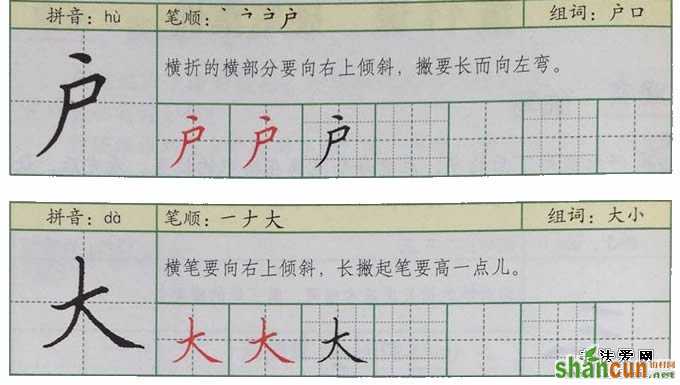 拼音：hù 笔顺：丶 ㇕ ヨ 户 组词：户口
户
横折的横部分要向右上倾斜，撇要长而向左弯。
户 户 户
拼音：dà 笔顺：一 ナ 大 组词：大小
大
横笔要向右上倾斜，长撇起笔要高一点儿。
大 大 大
法爱网
shancun